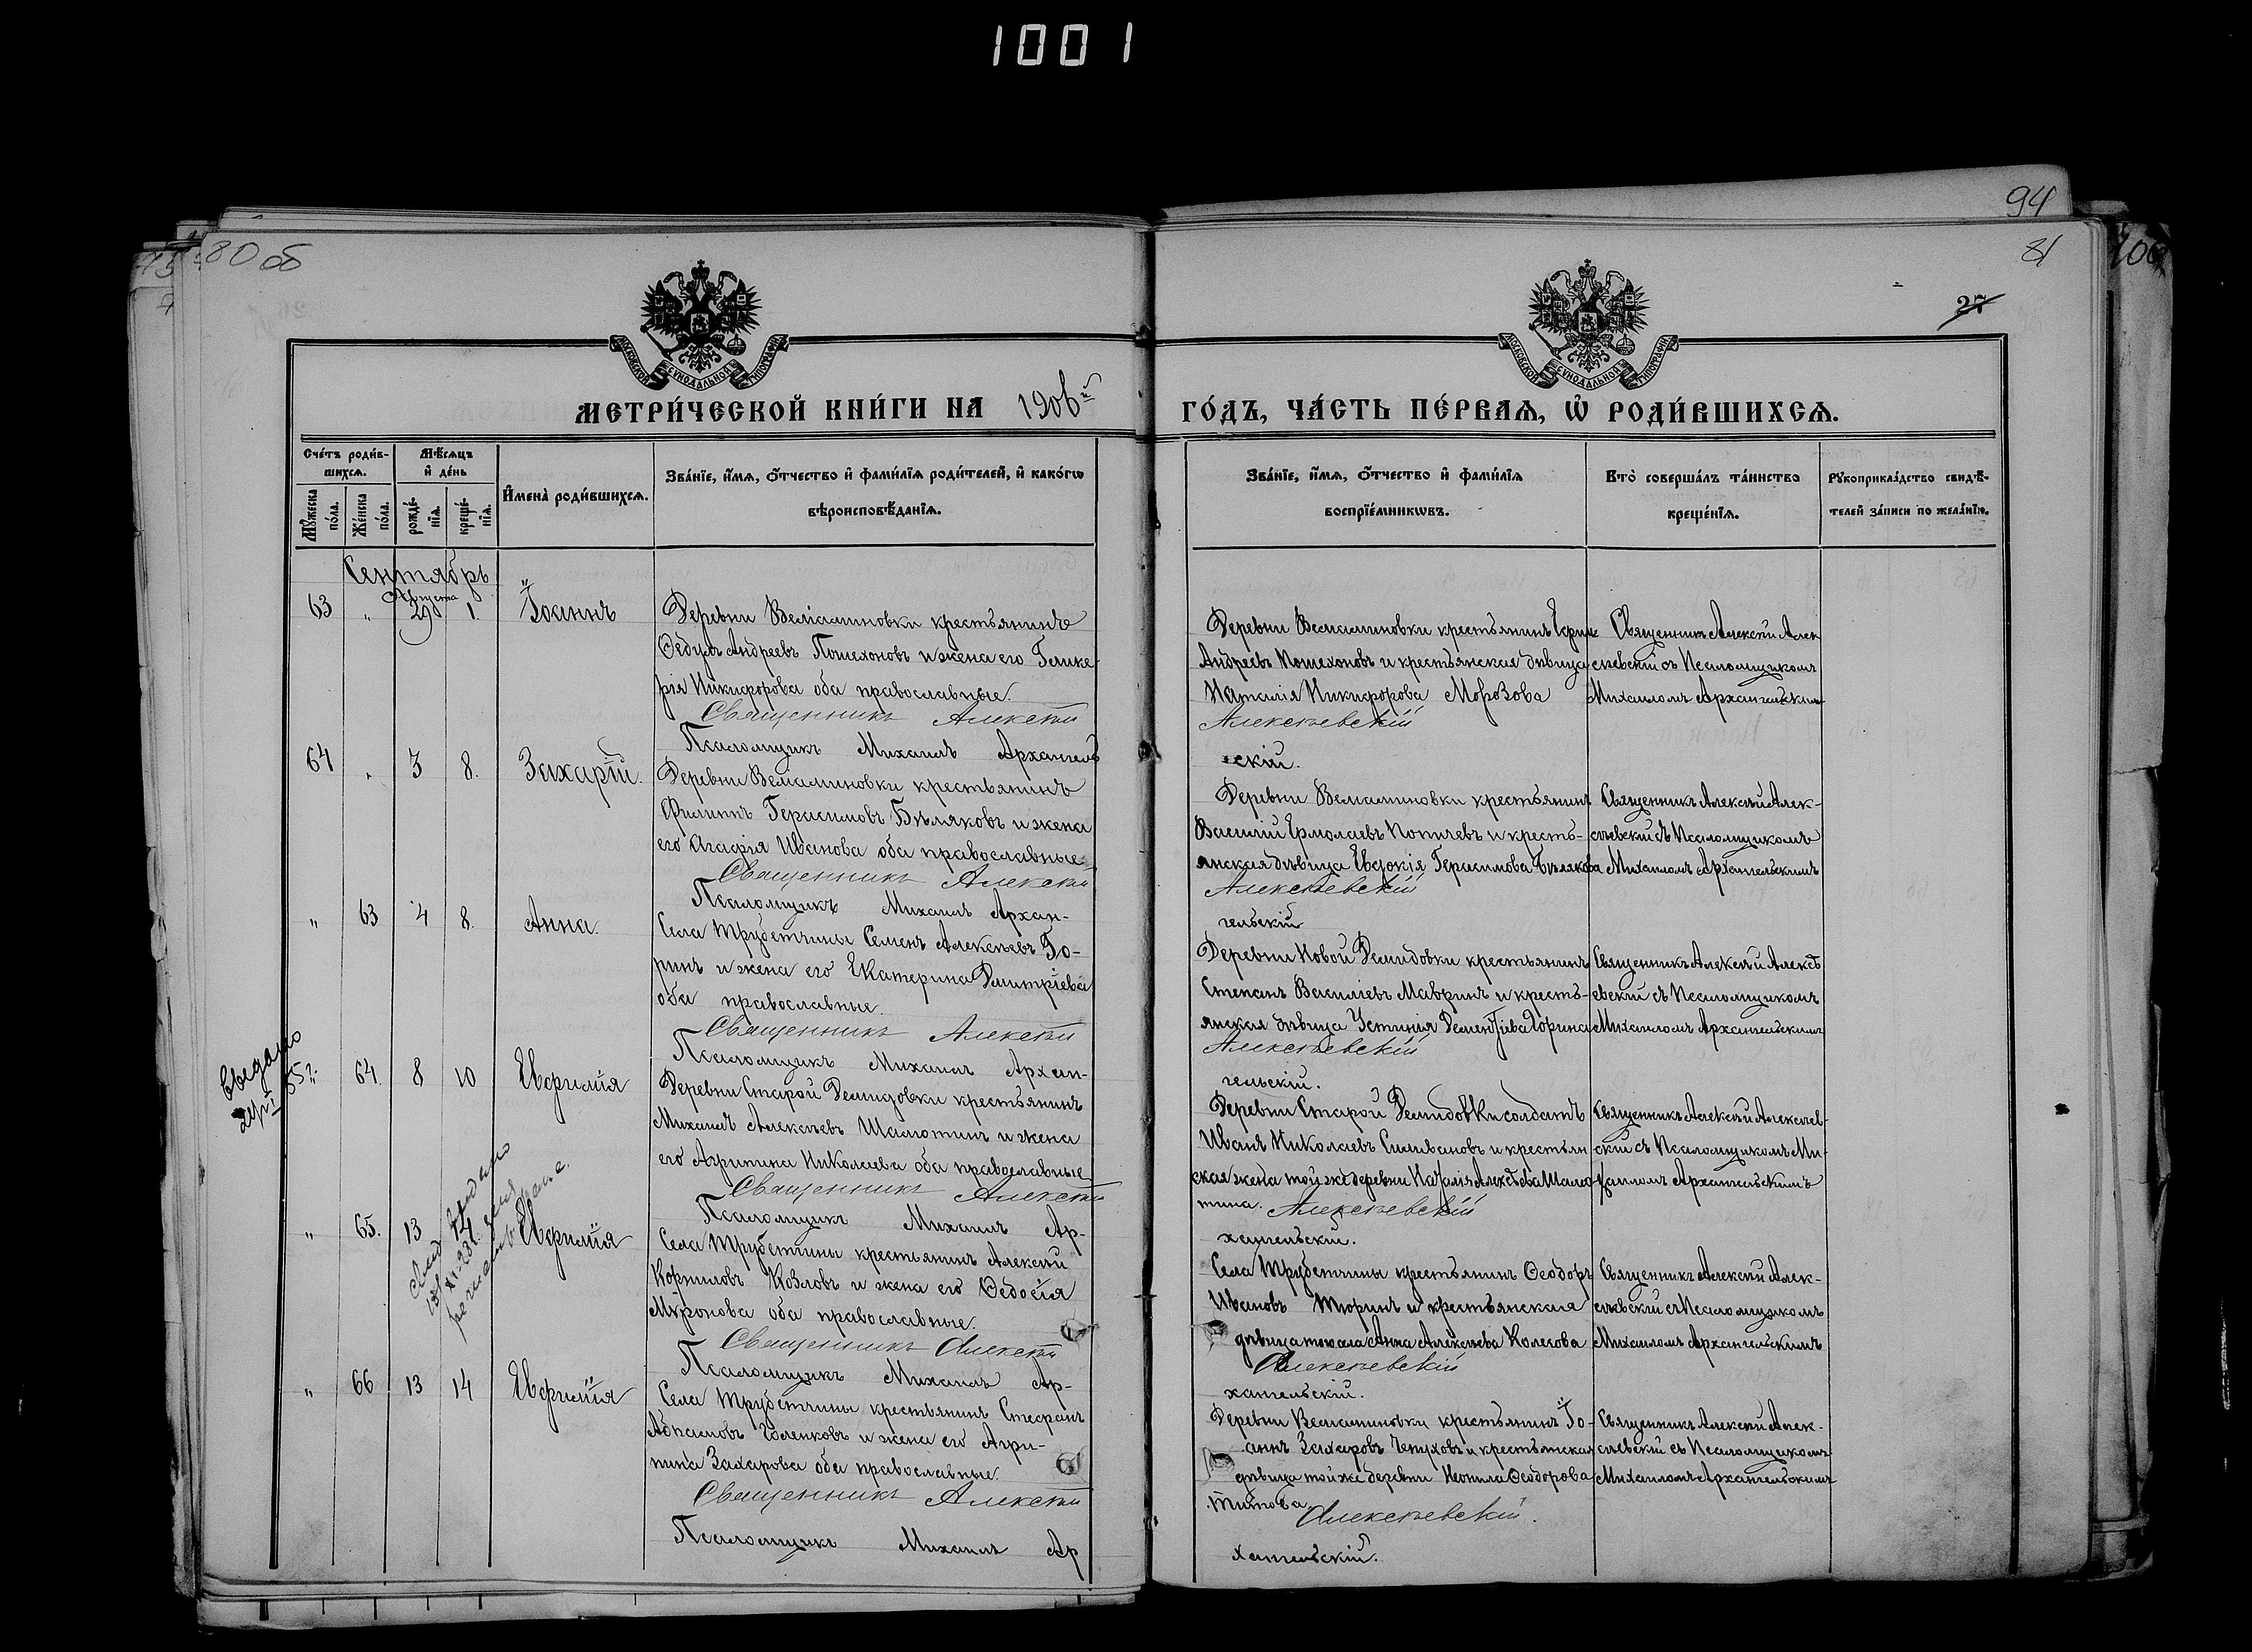 1001
94
80 об
81
27
МОСКОВСКОЙ СѴНОДАЛЬНОЙ ТИПОГРАФІИ
МОСКОВСКОЙ СѴНОДАЛЬНОЙ ТИПОГРАФІИ
МЕТРИ́ЧЕСКОЙ КНИ́ГИ НА 1906й ГО́ДЪ, ЧА́СТЬ ПЕ́РВАѦ, Ѽ РОДИ́ВШИХСѦ.
Сче́тъ роди́в-
шихсѧ.
Мѣ́сѧцъ
и҆ де́нь
Мꙋ́жеска по́ла.
Же́нска по́ла.
рожде́-нїѧ.
креще́-нїѧ.
И҆мена̀ роди́вшихсѧ.
Зва́нїе, и҆́мѧ, ѻ҆́тчество и҆ фами́лїѧ роди́телей, и҆ како́гѡ
вѣроисповѣ́данїѧ.
Зва́нїе, и҆́мѧ, ѻ҆́тчество и҆ фами́лїѧ
воспрїе́мникѡвъ.
Кто̀ соверша́лъ та́инство
креще́нїѧ.
Рꙋкоприкла́дство свидѣ́-
телей за́писи по жела́нїю.
Сентябрь
Августа
63 " 29 1. Іоаннъ
Деревни Веліаминовки крестьянинъ
Ѳедулъ Андреевъ Пошехоновъ и жена его Глике-
рія Никифорова оба православные.
Священникъ Алексѣй
Псаломщикъ Михаилъ Архангель
Деревни Веліаминовки крестьянинъ
Андреевъ Пошехоновъ и крестьянская дѣвица
Наталія Никифорова Морозова
Алексѣевскій
скій.
Священникъ Алексѣй Алек
сѣевскій съ Псаломщикомъ
Михаиломъ Архангельскимъ
64 " 3 8. Захарій.
Деревни Веліаминовки крестьянинъ
Филиппъ Герасимовъ Бѣляковъ и жена
его Агафія Иванова оба православные.
Священникъ Алексѣй
Псаломщикъ Михаилъ Архан-
Деревни Веліаминовки крестьянинъ
Василій Ермолаевъ и кресть-
янская дѣвица Евдокія Герасимова Бѣлякова
Алексѣевскій
гельскій
Священникъ Алексѣй Алек-
сѣевскій съ Псаломщикомъ
Михаиломъ Архангельскимъ
" 63 4 8. Анна.
Села Трубетчины Семенъ Алексѣевъ Го-
ринъ и жена его Екатерина Дмитріева
оба православные.
Священникъ Алексѣй
Псаломщикъ Михаилъ Архан-
Деревни Новой Демидовки крестьянинъ
Степанъ Василіевъ Мавринъ и кресть-
янская дѣвица Устинія Дементіева Горина
Алексѣевскій
гельскій.
Священникъ Алексѣй Алексѣ
евскій съ Псаломщикомъ
Михаиломъ Архангельскимъ
" 64 8 10 Евфимія
Деревни Старой Демидовки крестьянинъ
Михаилъ Алексѣевъ Шамотинъ и жена
его Агрипина Николаева оба православные
Священникъ Алексѣй
Псаломщикъ Михаилъ Ар-
Деревни Старой Демидовки солдатъ
Иванъ Николаевъ Силивановъ и крестьян
ская жена той же деревни Наталія Алексѣева Шамо
тина. Алексѣевскій
хангельскій.
Священникъ Алексѣй Алексѣев-
скій съ Псаломщикомъ Ми-
хаиломъ Архангельскимъ
" 65. 13 14 Евфимія
Села Трубетчины крестьянинъ Алексѣй
Корниловъ Козловъ и жена его Ѳедосія
Мѵронова оба православные.
Священникъ Алексѣй
Псаломщикъ Михаилъ Ар-
Села Трубетчины крестьянинъ Ѳеодоръ
Ивановъ Тюринъ и крестьянская
дѣвица Анна Алексѣева Колесова
Алексѣевскій
хангельскій.
Священникъ Алексѣй Алек-
сѣевскій съ Псаломщикомъ
Михаиломъ Архангельскимъ
" 66 13 14 Евфимія
Села Трубетчины крестьянинъ Стефанъ
Абрамовъ и жена его Агри-
пина Захарова оба православные.
Священникъ Алексѣй
Псаломщикъ Михаилъ Ар
Деревни Веліаминовки крестьянинъ Іо-
аннъ Захаровъ и крестьянская
дѣвица той же деревни Неонила Ѳеодорова
Титова. Алексѣевскій.
хангельскій.
Священникъ Алексѣй Алек-
сѣевскій съ Псаломщикомъ
Михаиломъ Архангельскимъ